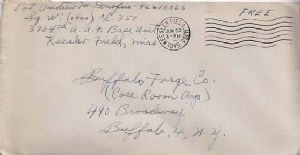 Pvt. Andrew M.
Sq. W. Cl. 351
3704th A.A.F. Base Unit
Keesler Field, Miss
KEESLER FIELD, MISS.
JUN 23
3 - PM
1945
FREE
Buffalo Forge Co.
(Core Room Boys)
490 Broadway
Buffalo, 4, N.Y.